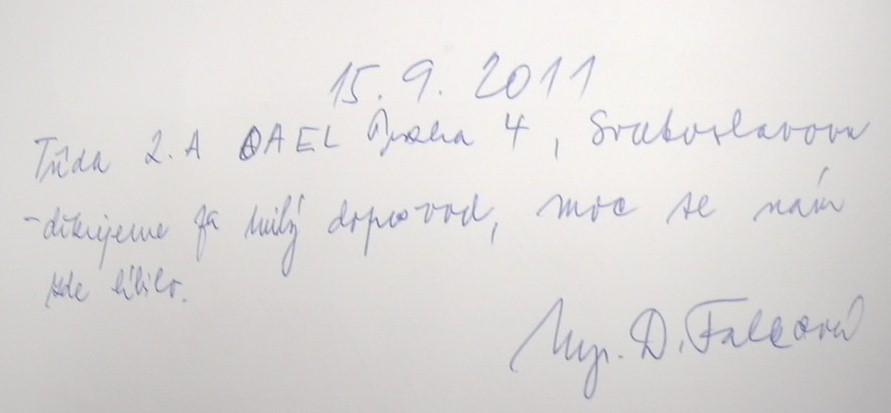 15. 9. 2011
Třída 2.A OAEL Praha 4, Svatoslavova
- děkujeme za milý doprovod, moc se nám
zde líbilo.
Mgr. D. Falcová